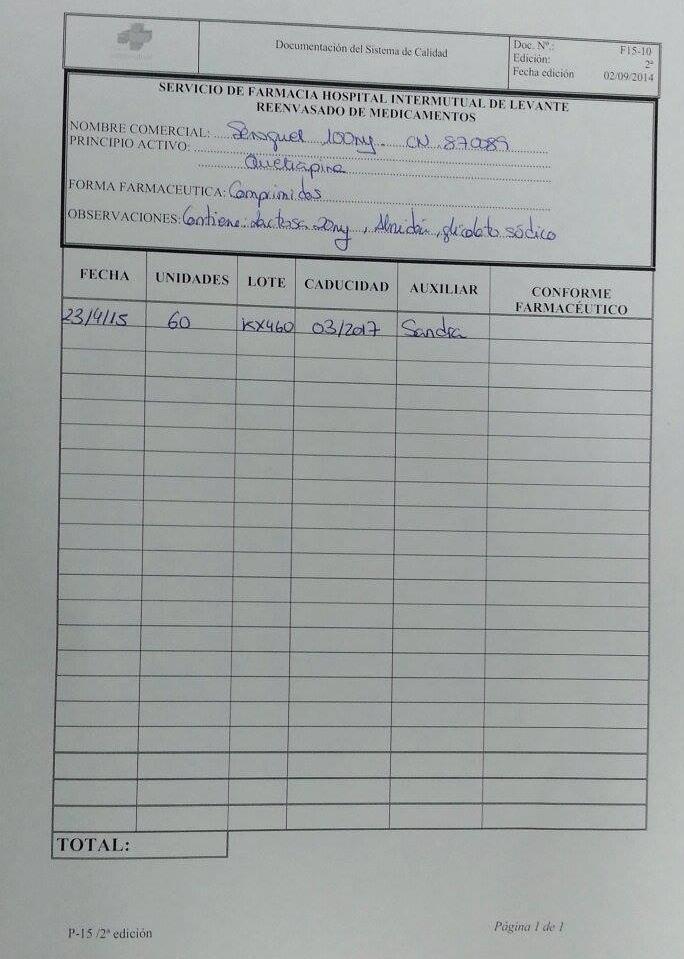 Documentación del Sistema de Calidad
Doc. Nº.: F15-10
Edición: 2ª
Fecha edición 02/09/2014
SERVICIO DE FARMACIA HOSPITAL INTERMUTUAL DE LEVANTE
REENVASADO DE MEDICAMENTOS
NOMBRE COMERCIAL: Seroquel 100mg CN 87089
PRINCIPIO ACTIVO:
Quetiapina
FORMA FARMACEUTICA: Comprimidos
OBSERVACIONES: Contiene: Lactosa 20mg, Almidón, glicolato sódico
FECHA UNIDADES LOTE CADUCIDAD AUXILIAR CONFORME FARMACÉUTICO
23/4/15 60 KX460 03/2017 Sandra
TOTAL:
P-15 /2ª edición
Página 1 de 1